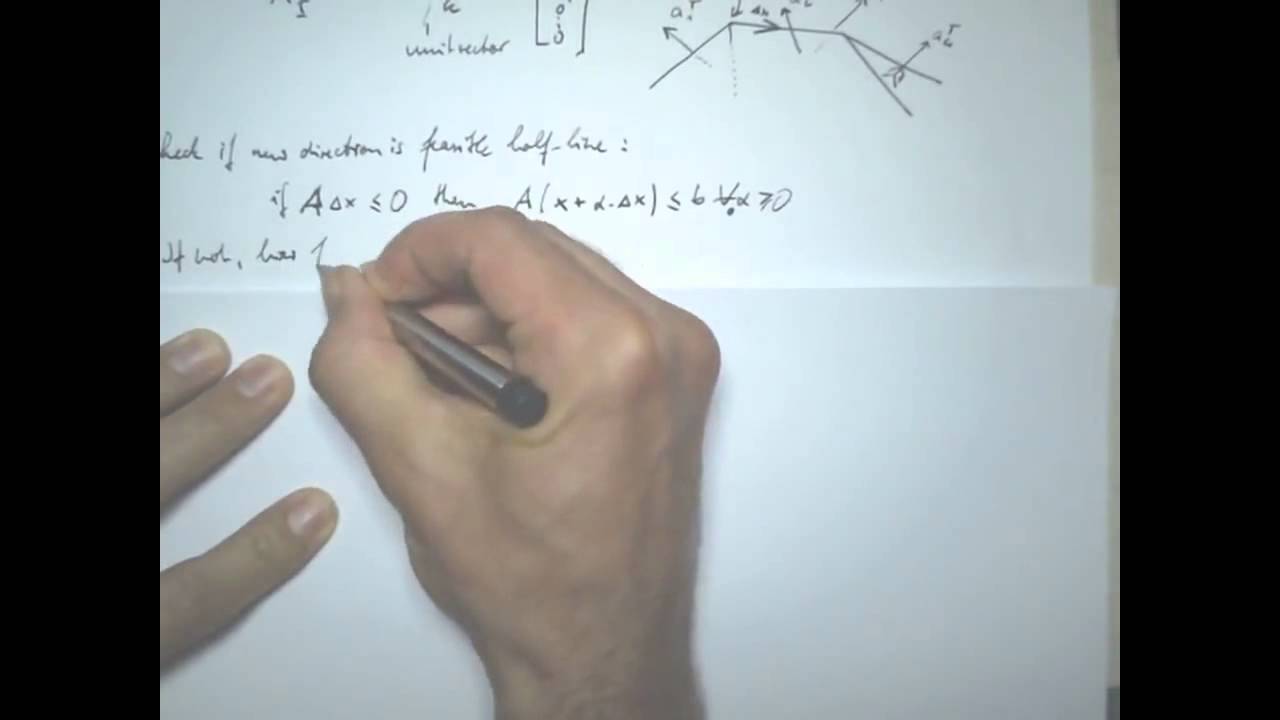 k
unit vector
0
⋮
0
Δx
heck if new direction is feasible half-line :
if A Δx ≤ 0 then A ( x + α · Δx ) ≤ b ∀ α ≥ 0
If not, how